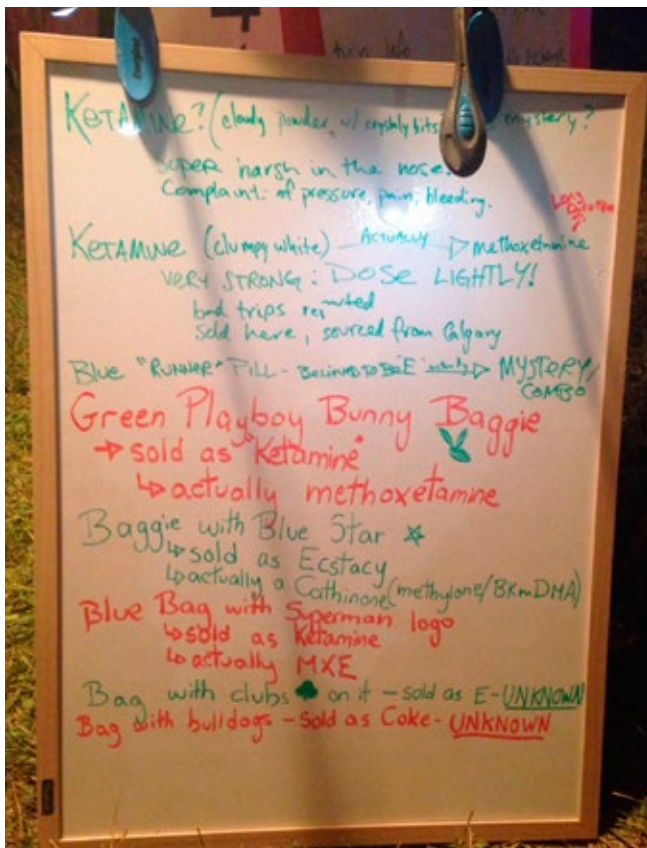 turn info
KETAMINE? (cloudy powder, w/ crystaly bits mystery?
SUPER harsh in the nose.
Complaint: of pressure, pain, bleeding.
LONG
DURATION
KETAMINE (clumpy white) ACTUALLY methoxetamine
VERY STRONG: DOSE LIGHTLY!
bad trips reported
sold here, sourced from Calgary
Blue "RUNNER" PILL - BELIEVED TO BE E MYSTERY/
COMBO
Green Playboy Bunny Baggie
sold as "Ketamine"
actually methoxetamine
Baggie with Blue Star
sold as Ecstacy
actually a Cathinone (methylone/BKmDMA)
Blue Bag with Superman logo
sold as Ketamine
actually MXE
Bag with clubs ♣ on it - sold as E - UNKNOWN
Bag with bulldogs - Sold as Coke - UNKNOWN